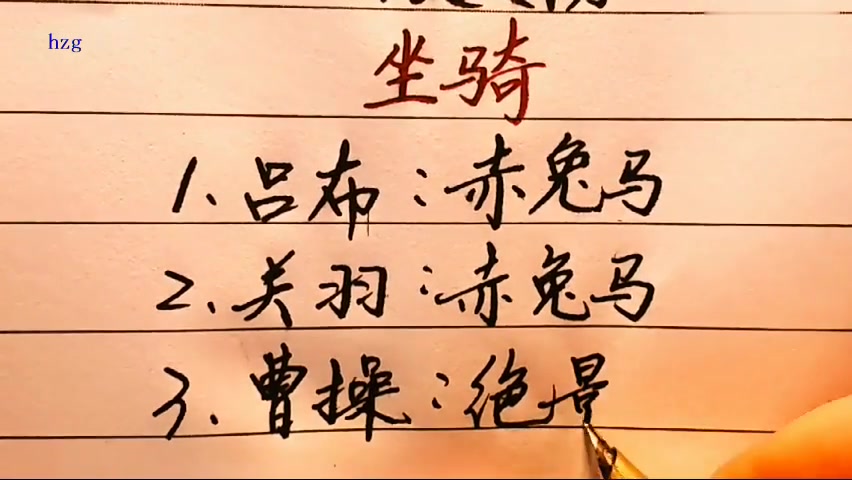 hzg
坐骑
1、吕布:赤兔马
2、关羽:赤兔马
3、曹操:绝景